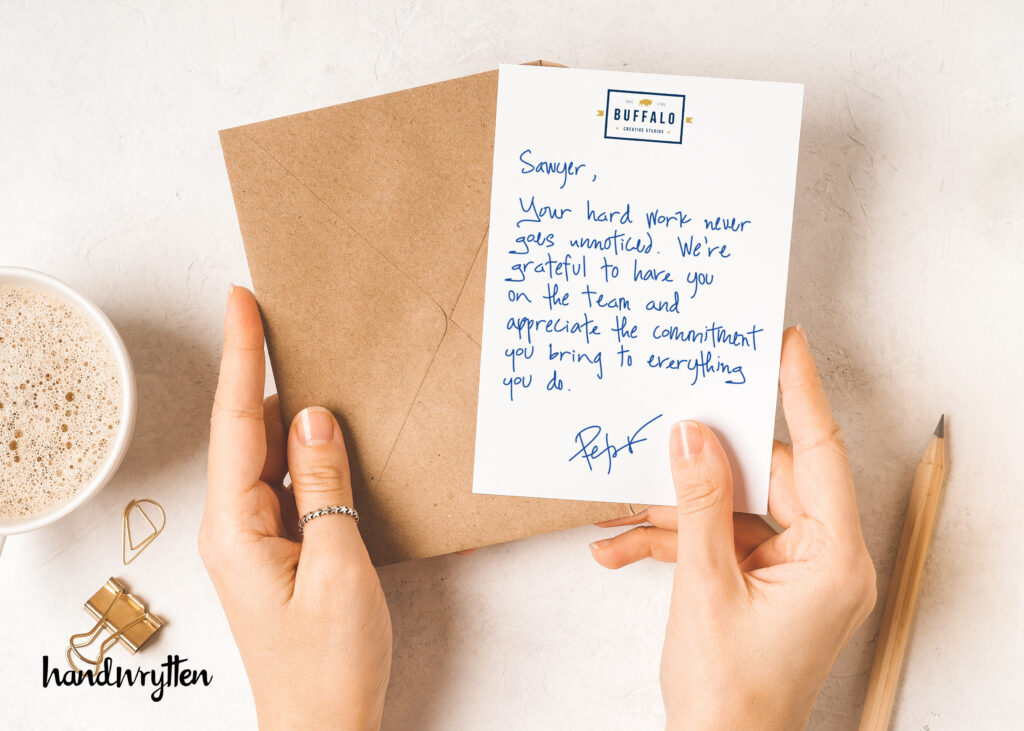 BUFFALO
CREATIVE STUDIOS
Sawyer,
Your hard work never
goes unnoticed. We're
grateful to have you
on the team and
appreciate the commitment
you bring to everything
you do.
handwrytten